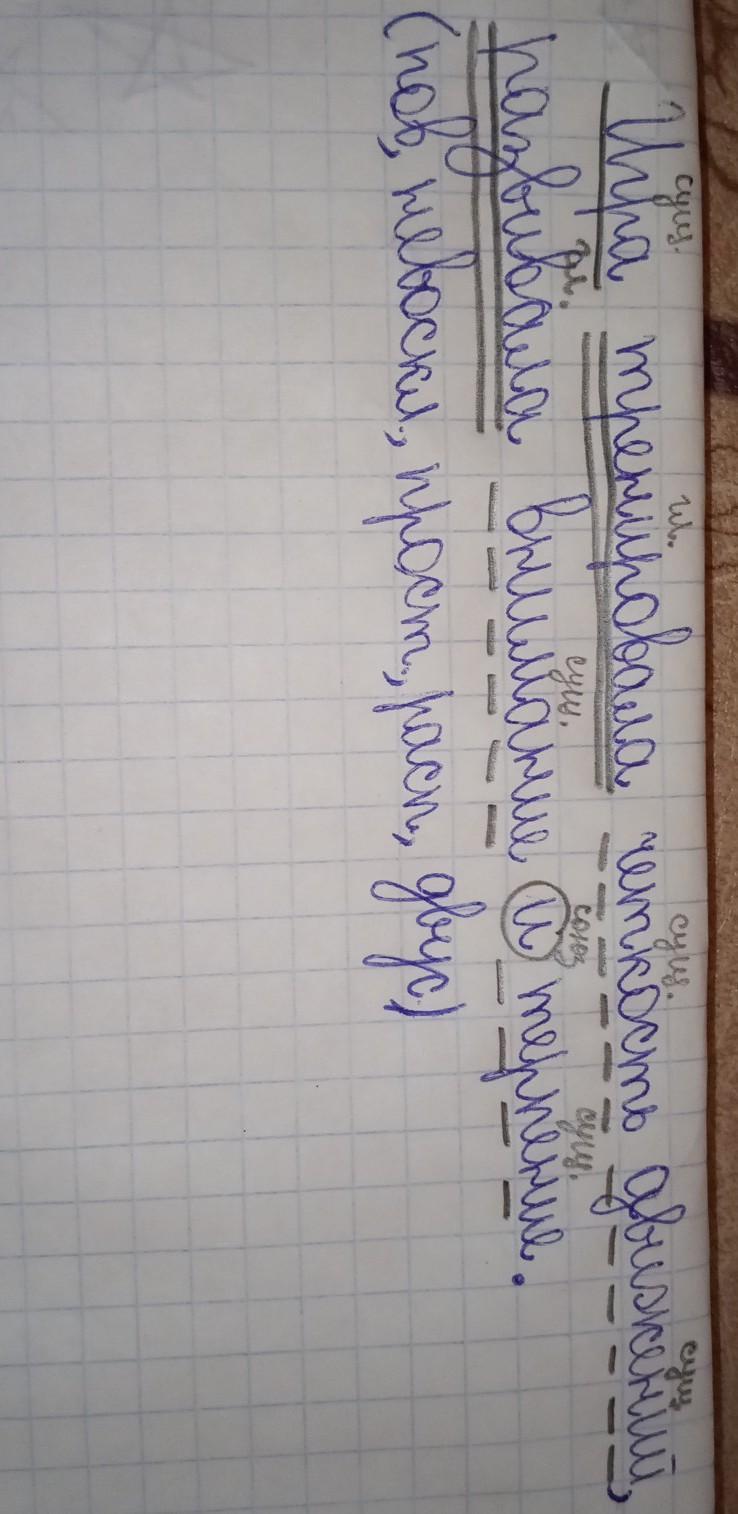 сущ. гл. сущ. сущ
Игра тренировала четкость движений,
гл. сущ. союз сущ.
развивала внимание и терпение.
(пов, невоскл., прост., расп, двус.)